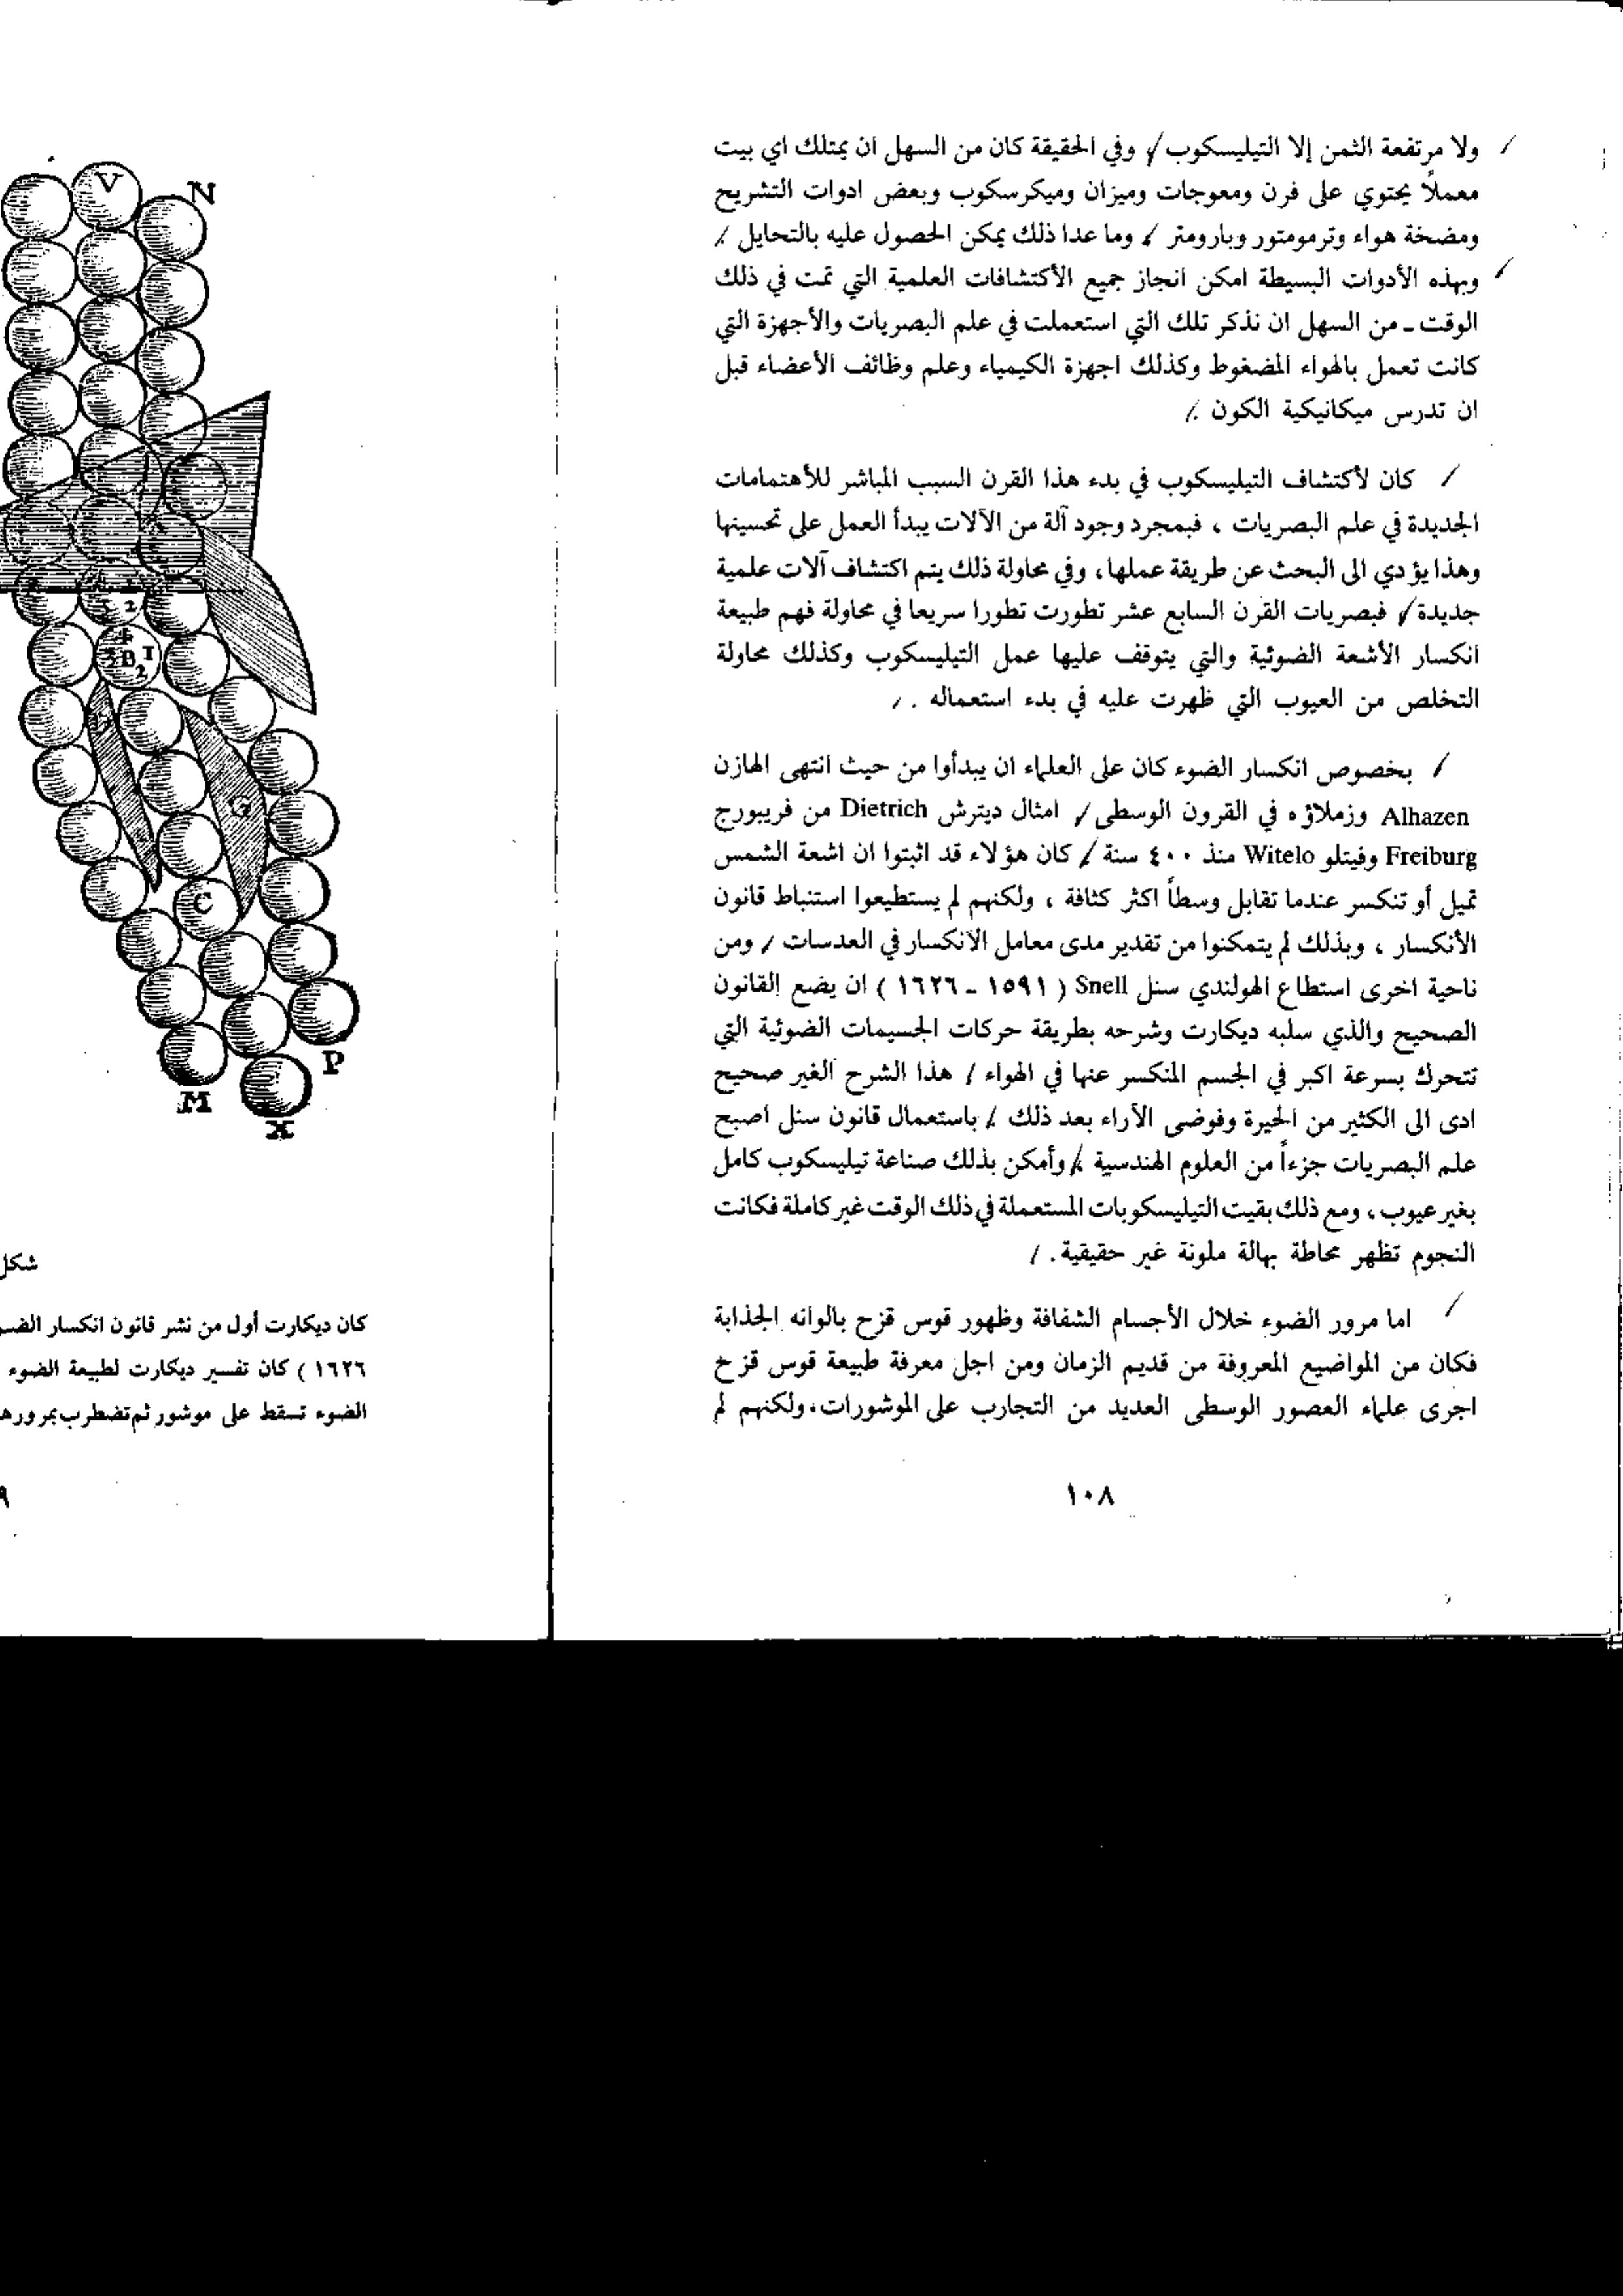 ولا مرتفعة الثمن إلا التيليسكوب / وفي الحقيقة كان من السهل ان يمتلك اي بيت
معملاً يحتوي على فرن ومعوجات وميزان وميكرسكوب وبعض ادوات التشريح
ومضخة هواء وترمومتور وبارومتر / وما عدا ذلك يمكن الحصول عليه بالتحايل /
وبهذه الأدوات البسيطة امكن انجاز جميع الأكتشافات العلمية التي تمت في ذلك
الوقت ـ من السهل ان نذكر تلك التي استعملت في علم البصريات والأجهزة التي
كانت تعمل بالهواء المضغوط وكذلك اجهزة الكيمياء وعلم وظائف الأعضاء قبل
ان تدرس ميكانيكية الكون /
/ كان لأكتشاف التيليسكوب في بدء هذا القرن السبب المباشر للأهتمامات
الجديدة في علم البصريات ، فبمجرد وجود آلة من الآلات يبدأ العمل على تحسينها
وهذا يؤدي الى البحث عن طريقة عملها، وفي محاولة ذلك يتم اكتشاف آلات علمية
جديدة / فبصريات القرن السابع عشر تطورت تطورا سريعا في محاولة فهم طبيعة
انكسار الأشعة الضوئية والتي يتوقف عليها عمل التيليسكوب وكذلك محاولة
التخلص من العيوب التي ظهرت عليه في بدء استعماله . /
/ بخصوص انكسار الضوء كان على العلماء ان يبدأوا من حيث انتهى الهازن
Alhazen وزملاؤه في القرون الوسطى / امثال ديترش Dietrich من فريبورج
Freiburg وفيتلو Witelo منذ ٤٠٠ سنة / كان هؤلاء قد اثبتوا ان اشعة الشمس
تميل أو تنكسر عندما تقابل وسطاً اكثر كثافة ، ولكنهم لم يستطيعوا استنباط قانون
الأنكسار ، وبذلك لم يتمكنوا من تقدير مدى معامل الأنكسار في العدسات / ومن
ناحية اخرى استطاع الهولندي سنل Snell ( ١٥٩١ ـ ١٦٢٦ ) ان يضع القانون
الصحيح والذي سلبه ديكارت وشرحه بطريقة حركات الجسيمات الضوئية التي
تتحرك بسرعة اكبر في الجسم المنكسر عنها في الهواء / هذا الشرح الغير صحيح
ادى الى الكثير من الحيرة وفوضى الآراء بعد ذلك / باستعمال قانون سنل اصبح
علم البصريات جزءاً من العلوم الهندسية / وأمكن بذلك صناعة تيليسكوب كامل
بغير عيوب ، ومع ذلك بقيت التيليسكوبات المستعملة في ذلك الوقت غير كاملة فكانت
النجوم تظهر محاطة بهالة ملونة غير حقيقية . /
/ اما مرور الضوء خلال الأجسام الشفافة وظهور قوس قزح بالوانه الجذابة
فكان من المواضيع المعروفة من قديم الزمان ومن اجل معرفة طبيعة قوس قزح
اجرى علماء العصور الوسطى العديد من التجارب على الموشورات، ولكنهم لم
١٠٨
V
N
2
4
3 B 1
2
G
C
P
M
X
شكل
كان ديكارت أول من نشر قانون انكسار الضـ
١٦٢٦ ) كان تفسير ديكارت لطبيعة الضوء
الضوء تسقط على موشور ثم تضطرب بمرورها
٩